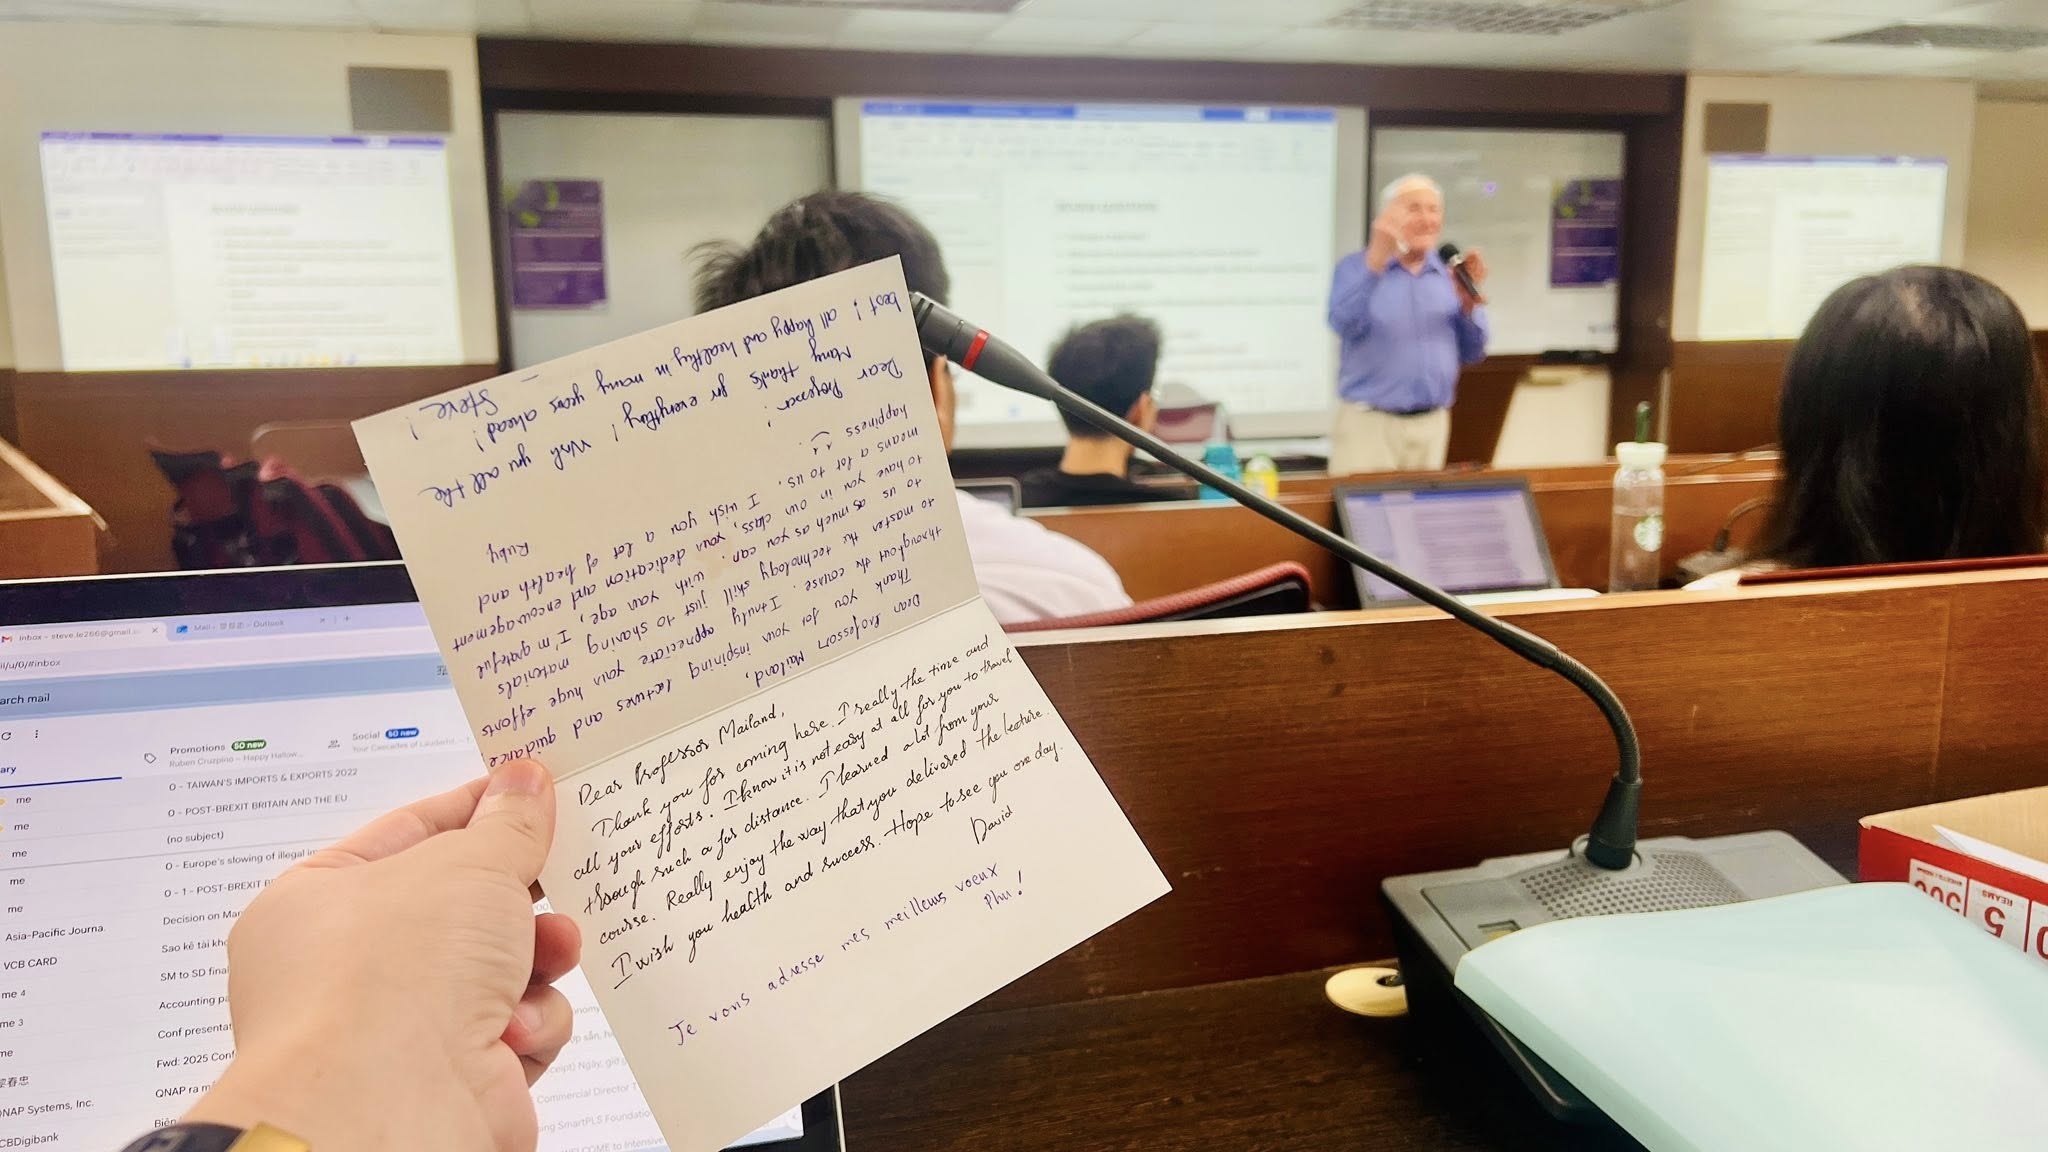 Dear Professor Mailand,
Thank you for your inspiring lectures and guidance
throughout the course. I truly appreciate your huge efforts
to master the technology skill just to sharing materials
to us as much as you can. With your age, I'm grateful
to have you in our class, your dedication and encouragement
means a lot to us. I wish you a lot of health and
happiness
Ruby
Dear Professor!
Many thanks for everything! Wish you all the
best! all happy and healthy in many years ahead!
Steve!
Dear Professor Mailand,
Thank you for coming here. I really the time and
all your efforts. I know it is not easy at all for you to travel
through such a far distance. I learned a lot from your
course. Really enjoy the way that you delivered the lecture.
I wish you health and success. Hope to see you one day.
David
Je vous adresse mes meilleurs voeux
Phu!
Inbox - steve.le266@gmail.c
Mail - 黎春忠 - Outlook
il/u/0/#inbox
arch mail
Promotions 50 new
Ruben Cruzpino – Happy Hallow...
Social 50 new
ary
me 0 - TAIWAN'S IMPORTS & EXPORTS 2022
me 0 - POST-BREXIT BRITAIN AND THE EU
me (no subject)
me 0 - Europe's slowing of illegal im
me 0 - 1 - POST-BREXIT BR
Asia-Pacific Journa. Decision on Man
VCB CARD Sao kê tài kho
me 4 SM to SD final
me 3 Accounting pa
me Conf presentat
黎春忠 Fwd: 2025 Conf
QNAP Systems, Inc. QNAP ra m
CBDigibank Biên
Commercial Director T
ing SmartPLS Foundatio
WELCOME to Intensive
5 REAMS
500